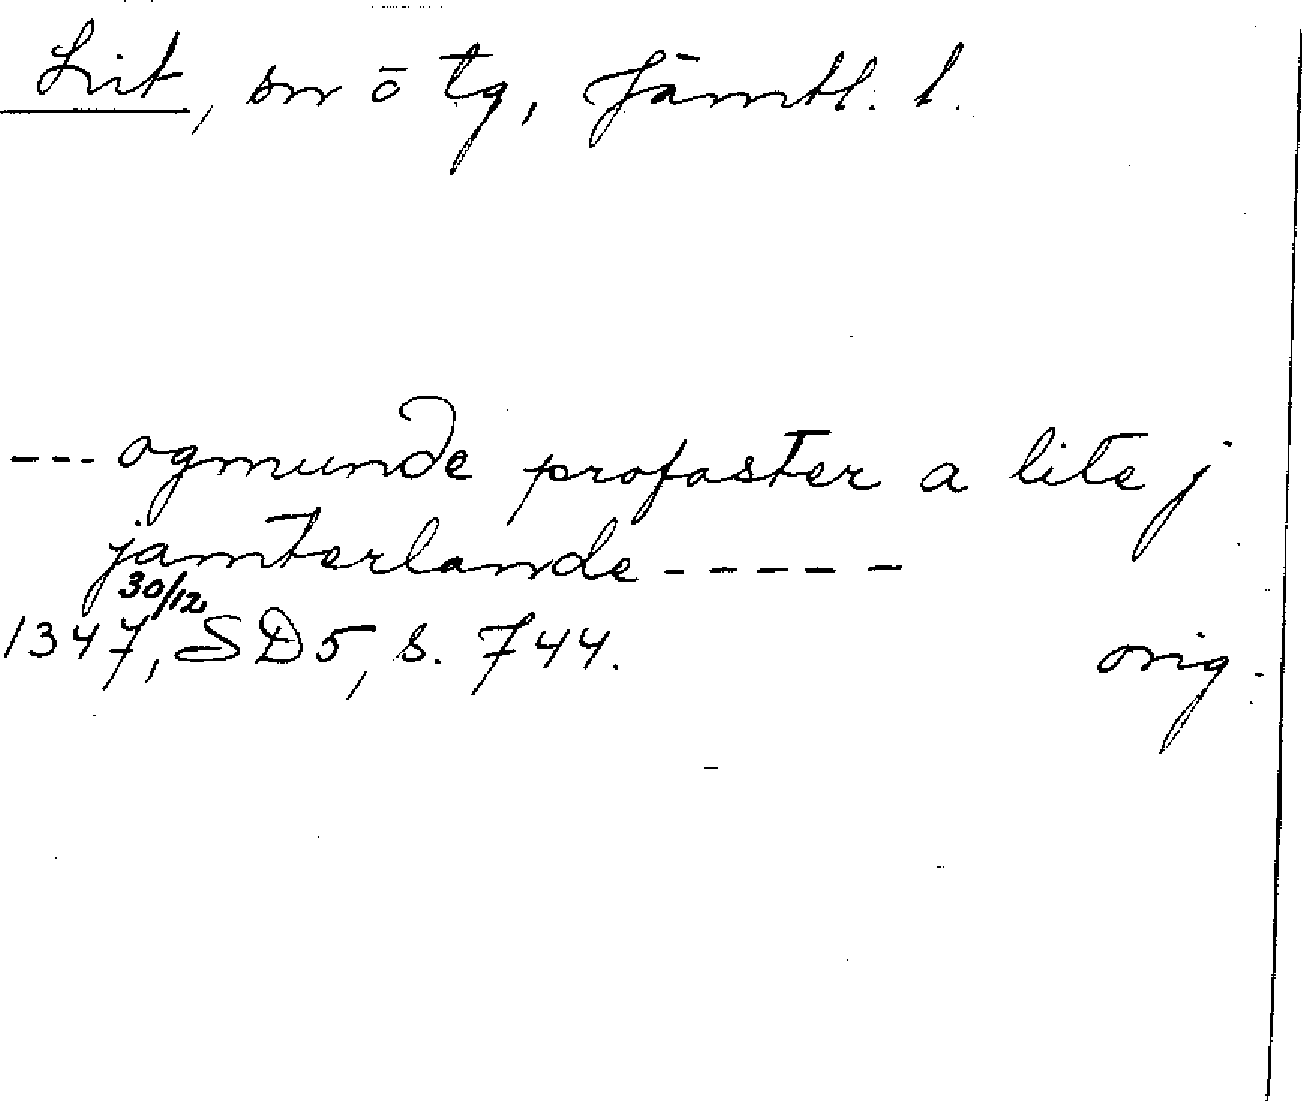 Lit, sn ö tg, Jämtl. l.
--- ogmunde profaster a lite j
jamterlande -----
30/12
1347, SD5, s. 744. orig.